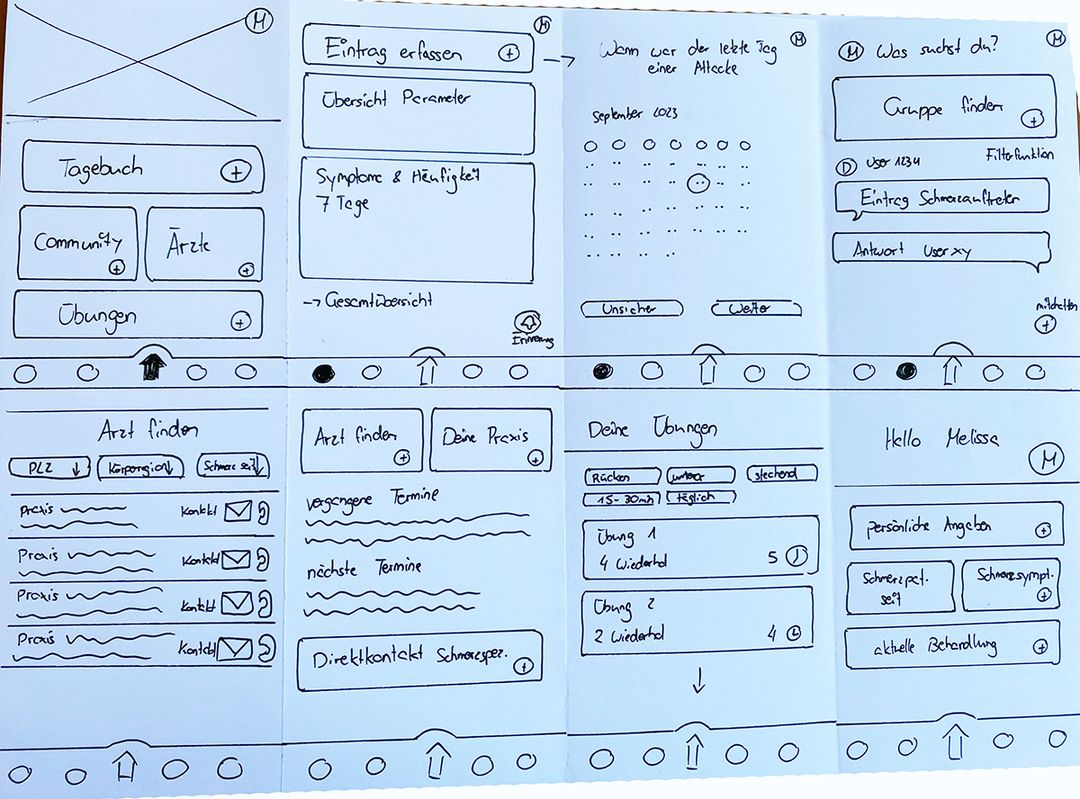 M
Tagebuch
Community
Ärzte
Übungen
M
Eintrag erfassen
Übersicht Parameter
Symptome & Häufigkeit
7 Tage
→ Gesamtübersicht
Erinnerung
M
Wann war der letzte Tag
einer Attacke
September 2023
Unsicher
Weiter
M
M Was suchst du?
Gruppe finden
Filterfunktion
D User 1234
Eintrag Schmerzauftreter
Antwort User xy
Arzt finden
PLZ ↓
Körperregion ↓
Schmerz seit ↓
Praxis
Kontakt
Praxis
Kontakt
Praxis
Kontakt
Praxis
Kontakt
Arzt finden
Deine Praxis
vergangene Termine
nächste Termine
Direktkontakt Schmerzspez.
Deine Übungen
Rücken
unterer
stechend
15-30min
täglich
Übung 1
4 Wiederhol
5
Übung 2
2 Wiederhol
4
Hello Melissa
M
persönliche Angaben
Schmerzpat.
seit
Schmerzsympt.
aktuelle Behandlung